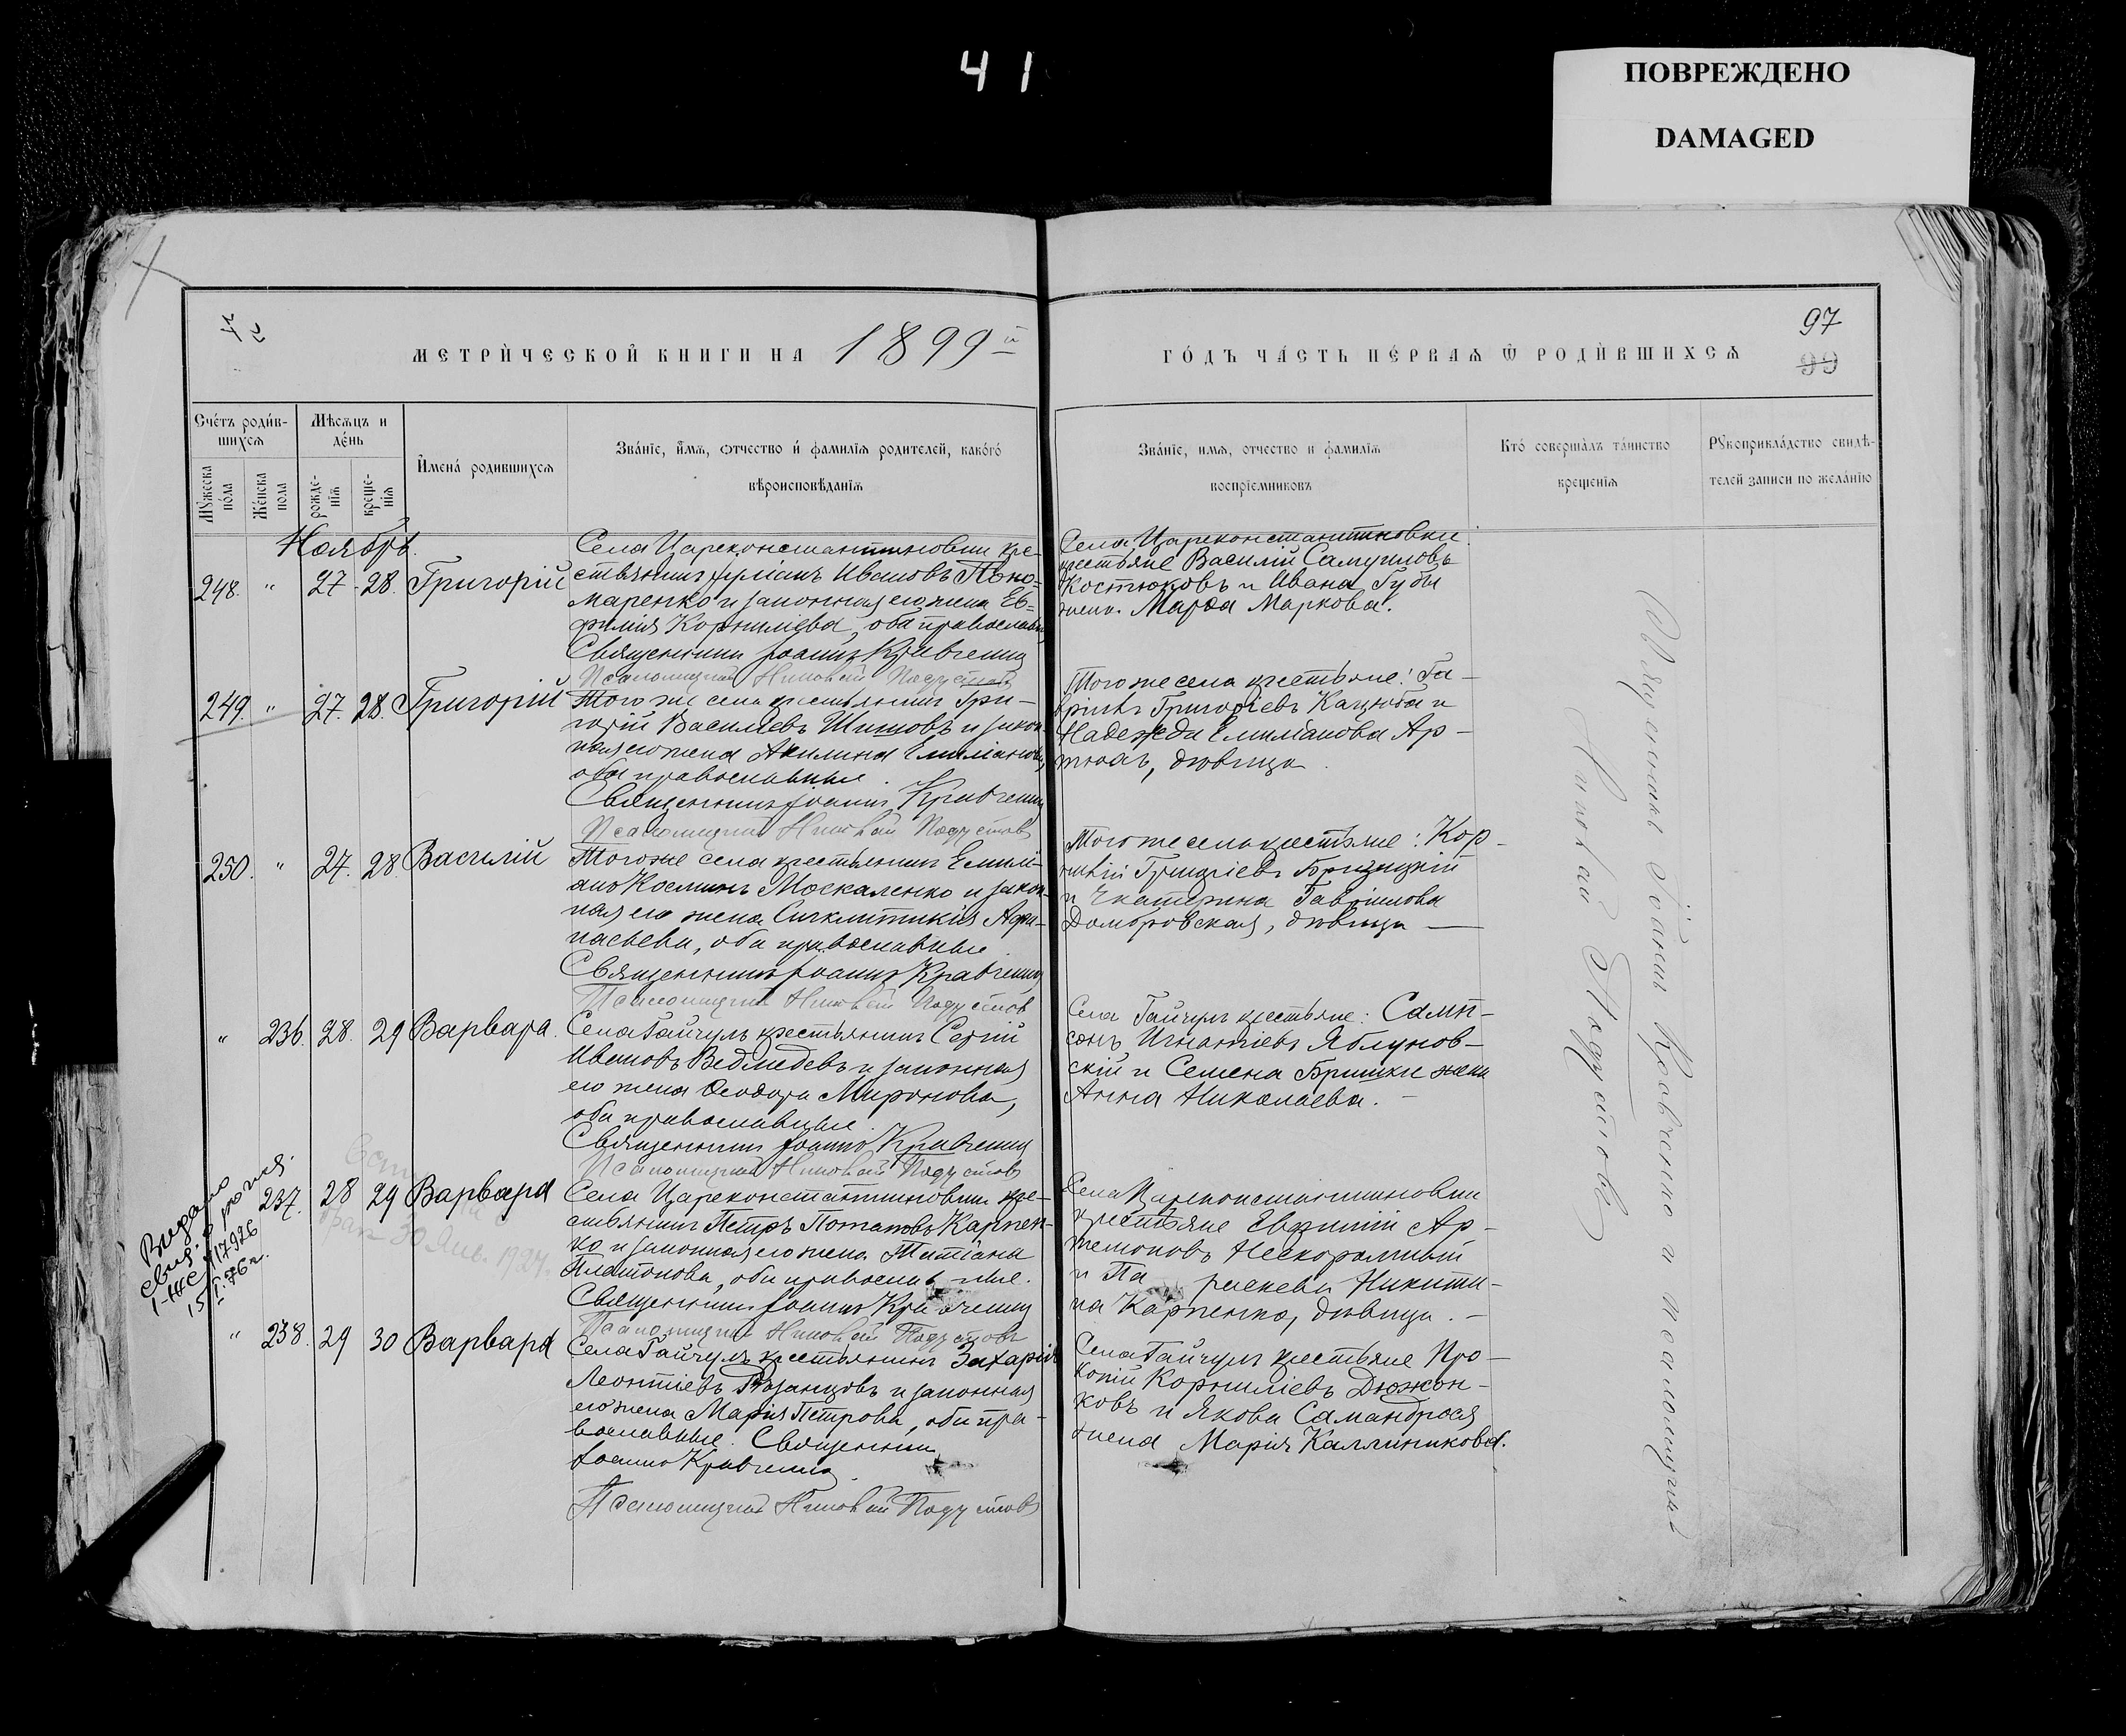 41
ПОВРЕЖДЕНО
DAMAGED
97
99
МЕТРИЧЕСКОЙ КНИГИ НА 1899й
ГОДЪ ЧАСТЬ ПЕРВАЯ Ѿ РОДИВШИХСЯ
Счетъ родив-
шихся
Мужеска
пола
Женска
пола
Мѣсяцъ и
день
рожде-
нія
креще-
нія
Имена родившихся
Званіе, имя, отчество и фамилія родителей, какого
вѣроисповѣданія
Званіе, имя, отчество и фамилія
воспріемниковъ
Кто совершалъ таинство
крещенія
Рукоприкладство свидѣ-
телей записи по желанію
Ноябрь.
248. " 27 - 28. Григорій
Села Цареконстантиновки кре-
стьянинъ Іуліанъ Ивановъ Поно-
маренко и законная его жена Ев-
фимія Корнилиева, оба православн
Священникъ Іоаннъ Кравченко
Псаломщикъ Николай Подустовъ
Села Цареконстантиновки
крестьяне Василій Самуиловъ
Костюковъ и Ивана Губы
жена Марѳа Маркова.
249. " 27. 28. Григорій
Того же села крестьянинъ Гри-
горій Василіевъ Шишовъ и закон-
ная его жена Акилина Емиліанова,
оба православные.
Священникъ Іоаннъ Кравченко
Псаломщикъ Николай Подустовъ
Того же села крестьяне: Га-
вріилъ Григоріевъ Кацюба и
Надежда Емиліанова Ар-
тюхъ, дѣвица.
250. " 27. 28. Василій
Того же села крестьянинъ Емилі-
анъ Косминъ Москаленко и закон-
ная его жена Синклитикія Аѳа-
насьева, оба православные.
Священникъ Іоаннъ Кравченко
Псаломщикъ Николай Подустовъ
Того же села крестьяне: Кор-
нилій Григоріевъ Бризицкій
и Екатерина Гавріилова
Домбровская, дѣвица —
" 236. 28. 29 Варвара.
Села Гайчулъ крестьянинъ Сергій
Ивановъ Ведмедевъ и законная
его жена Ѳеодора Миронова,
оба православные.
Священникъ Іоаннъ Кравченко
Псаломщикъ Николай Подустовъ
Села Гайчулъ крестьяне: Самп-
сонъ Игнатіевъ Яблунов-
скій и Семена Бришки жена
Анна Николаева. -
Видано
свид. о рожд.
15/I.76г.
237. 28 29 Варвара
30 Янв. 1924
Села Цареконстантиновки кре-
стьянинъ Петръ Потаповъ Карпен-
ко и законная его жена Татіана
Платонова, оба православные.
Священникъ Іоаннъ Кравченко
Псаломщикъ Николай Подустовъ
Села Цареконстантиновки
крестьяне Евѳимій Ар-
темоновъ Нескоромный
и Параскева Никити-
на Карпенко, дѣвица. -
" 238. 29 30 Варвара
Села Гайчулъ крестьянинъ Захарія
Леонтіевъ Рязанцовъ и законная
его жена Марія Петрова, оба пра-
вославные. Священникъ
Іоаннъ Кравченко.
Псаломщикъ Николай Подустовъ
Села Гайчулъ крестьяне Про-
копій Корниліевъ Дюжон-
ковъ и Якова
жена Марія Каллиникова.
Священникъ Іоаннъ Кравченко и псаломщикъ
Николай Подустовъ